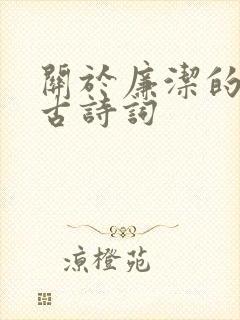 關於廉潔的
古詩詞
涼橙苑